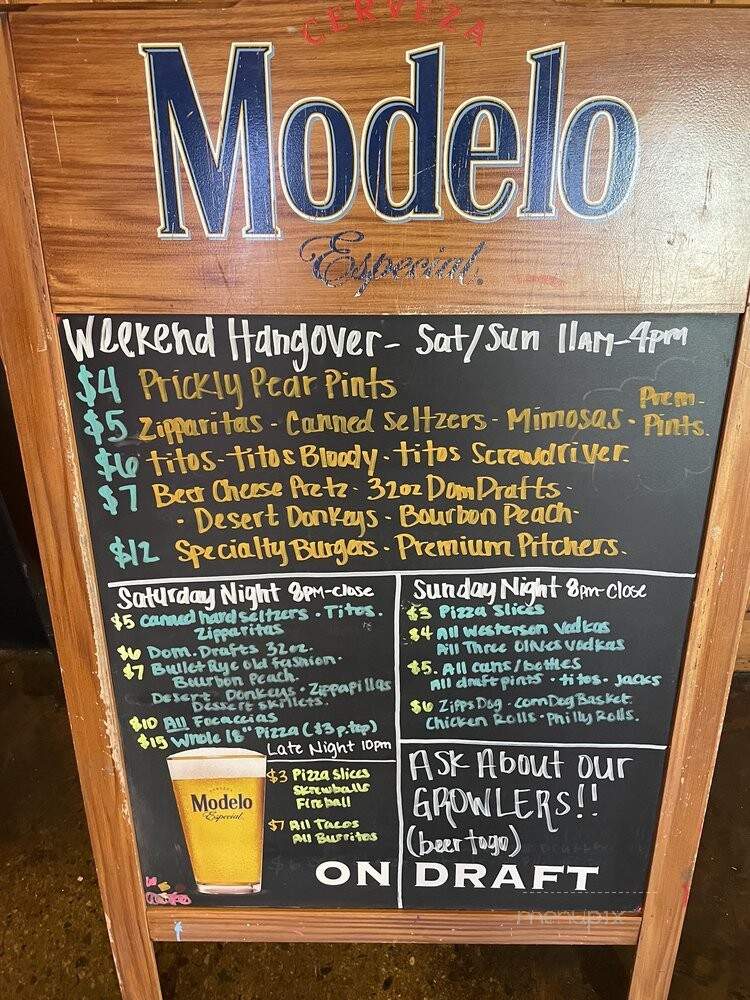 CERVEZA
Modelo
Especial.
Weekend Hangover - Sat/Sun 11AM-4pm
$4 Prickly Pear Pints
$5 Zipparitas - Canned Seltzers - Mimosas - Prem. Pints.
$6 titos - Titos Bloody - titos Screwdriver.
$7 Beer Cheese Pretz - 32oz Dom Drafts -
- Desert Donkeys - Bourbon Peach -
$12 Specialty Burgers - Premium Pitchers.
Saturday Night 8PM-close
$5 canned hard seltzers - Titos.
Zipparitas
$6 Dom. Drafts 32oz.
$7 Bullet Rye old fashion.
Bourbon Peach.
Desert Donkeys - Zippapillas
Dessert skillets.
$10 All Focaccias
$15 Whole 18" Pizza ($3 p.top)
Late Night 10pm
$3 Pizza Slices
Skrewballs
Fireball
$7 All Tacos
All Burritos
Sunday Night 8pm-close
$3 Pizza Slices
$4 All Westerson Vodkas
All Three Olives Vodkas
$5. All cans/bottles
All draft pints - titos - Jacks
$6 Zipps Dog - Corn Dog Basket.
Chicken Rolls - Philly Rolls.
Ask About our
GROWLERS!!
(beer to go)
Modelo
Especial
ON DRAFT
menupix